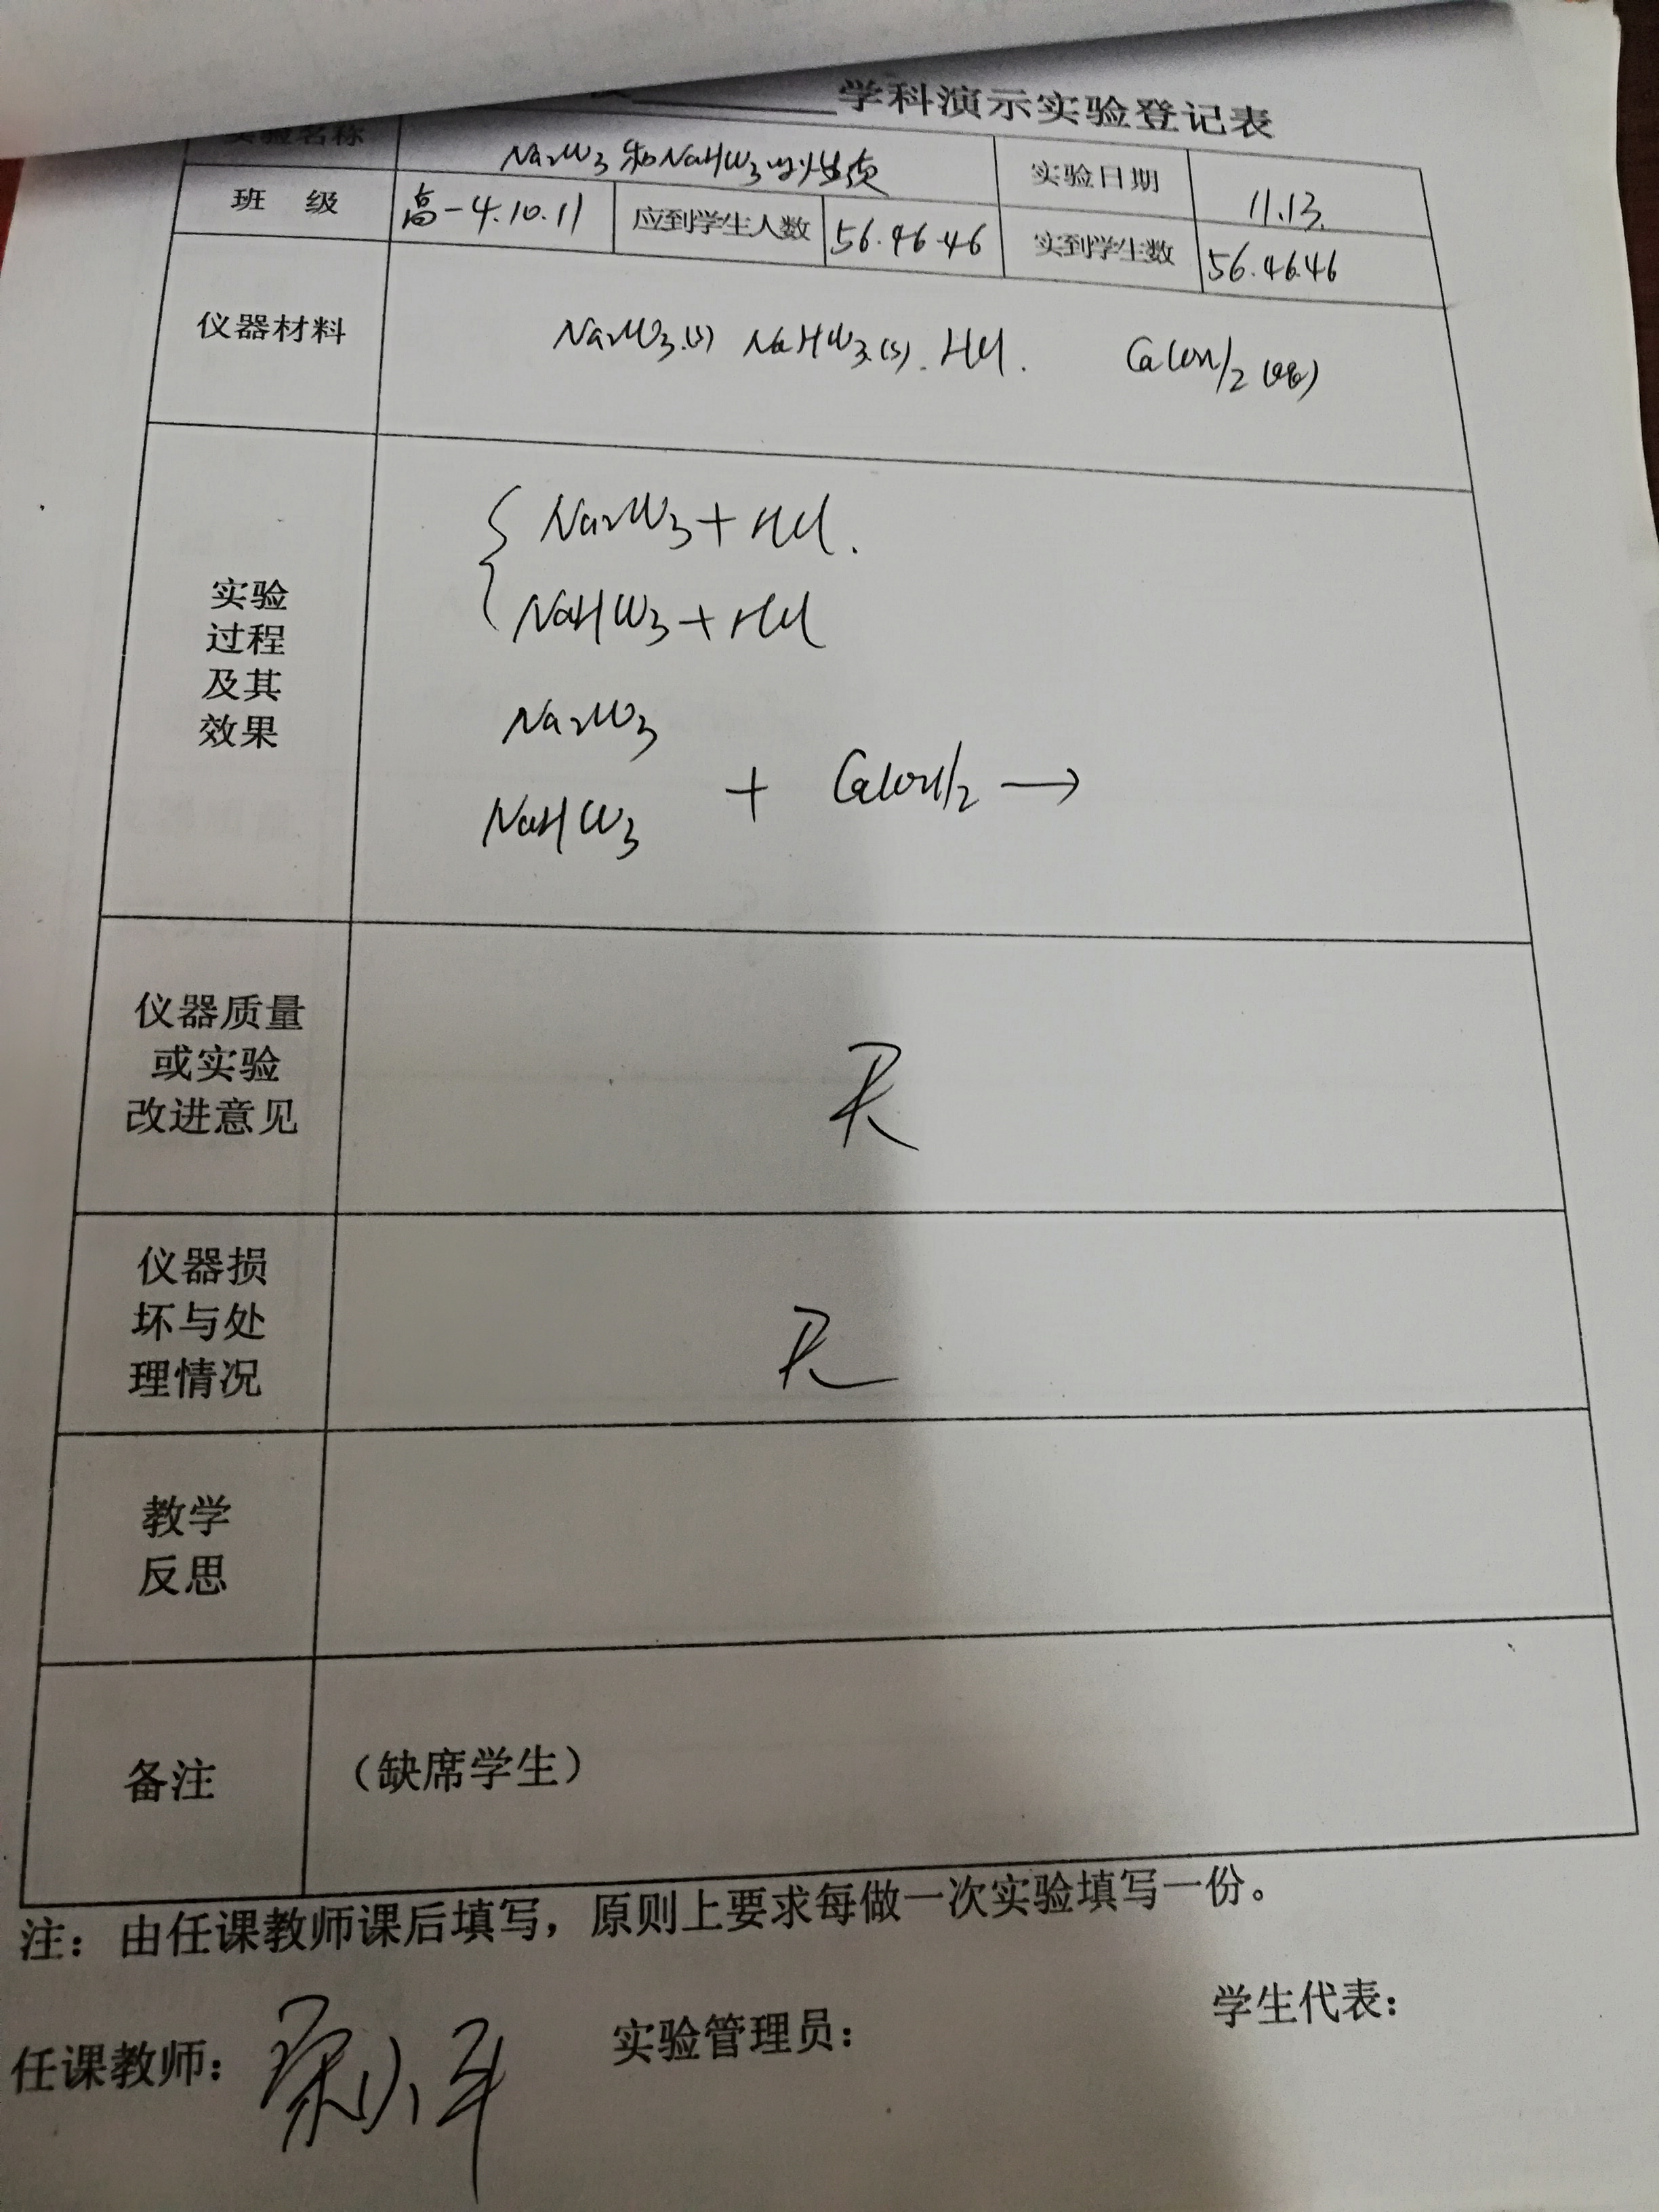 学科演示实验登记表
实验名称 Na2CO3和NaHCO3的性质 实验日期 11.13.
班 级 高一4.10.11 应到学生人数 56.46.46 实到学生数 56.46.46
仪器材料 Na2CO3.(s) NaHCO3.(s). HCl. Ca(OH)2(aq)
实验
过程
及其
效果
{Na2CO3+HCl.
NaHCO3+HCl
Na2CO3
+ Ca(OH)2 →
NaHCO3
仪器质量
或实验
改进意见
无
仪器损
坏与处
理情况
无
教学
反思
备注 （缺席学生）
注：由任课教师课后填写，原则上要求每做一次实验填写一份。
任课教师： 实验管理员： 学生代表：